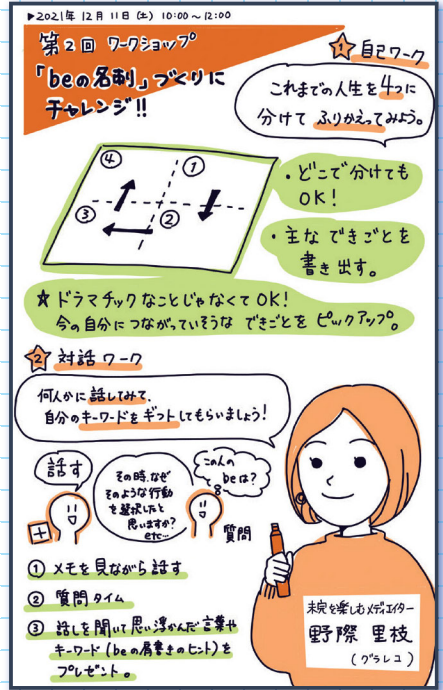 ▶2021年 12月 11日 (土) 10:00〜12:00
第2回 ワークショップ
「beの名刺」づくりに
チャレンジ!!
1 自己ワーク
これまでの人生を4つに
分けて ふりかえってみよう。
④ ①
③ ②
・どこで分けても
OK!
・主な できごとを
書き出す。
☆ ドラマチックなことじゃなくてOK!
今の自分につながっていそうな できごとを ピックアップ。
2 対話ワーク
何人かに 話してみて、
自分のキーワードを ギフトしてもらいましょう!
話す
その時、なぜ
そのような行動
を選択したと
思いますか?
etc…
この人の
beは?
質問
① メモを見ながら話す
② 質問タイム
③ 話しを聞いて思い浮かんだ言葉や
キーワード(beの肩書きのヒント)を
プレゼント。
未完を楽しむメディエイター
野際 里枝
(グラレコ)